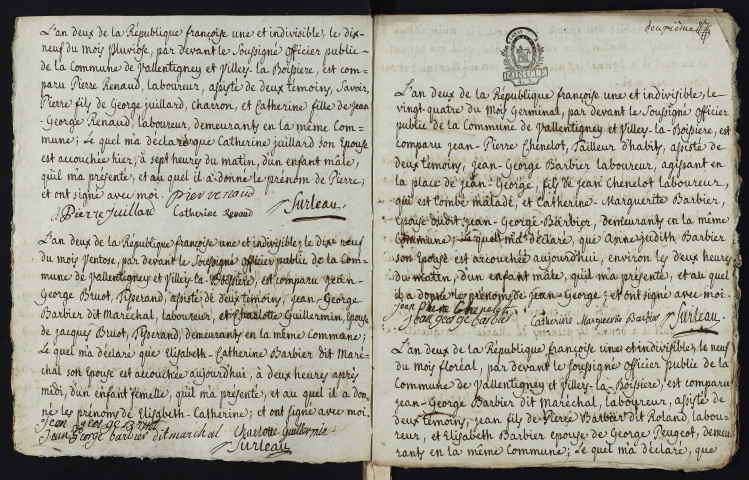 L'an deux de la République françoise une et indivisible, le dix-
neuf du mois pluviose, par devant le Soussigné officier public
de la Commune de Vallentigney et Villers-la-Boissiere, est com-
paru Pierre Renaud, laboureur, assisté de deux temoins, Savoir,
Pierre fils de George juillard, charron, et Catherine fille de Jean-
George Renaud, laboureur, demeurants en la même Com-
mune; Le quel m'a déclaré que Catherine juillard son Epouse
est accouchée hier, à sept heures du matin, d'un enfant mâle,
qu'il m'a présenté, et au quel il a donné le prénom de Pierre;
et ont signé avec moi. pierre renaud
Pierre juillard Catherine Renaud Surleau.
L'an deux de la République françoise une et indivisible, le dix neuf
du mois Ventose, par devant le Soussigné officier public de la Com-
mune de Vallentigney et Villers-la-Boissiere, est comparu jean-
George Bruot, Tisserand, assisté de deux temoins, jean-George
Barbier dit Maréchal, laboureur, et Charlotte Guillermin, Epouse
de jacques Bruot, Tisserand, demeurants en la même Commune;
Le quel m'a déclaré que Elisabeth-Catherine Barbier dit Maré-
chal son Epouse est accouchée aujourd'hui, à deux heures après
midi, d'un enfant femelle, qu'il m'a présenté, et au quel il a don-
né les prénoms de Elisabeth-Catherine; et ont signé avec moi.
jean george
jean george barbier dit marichal Charlotte Guillermin
Surleau
deuxième
MINUTE
L'an deux de la République françoise une et indivisible, le
vingt-quatre du Mois Germinal, par devant le Soussigné officier
public de la Commune de Vallentigney et Villers-la-Boissiere, est
comparu jean-Pierre Chenelot, Tailleur d'habits, assisté de
deux temoins, jean-George Barbier laboureur, agissant en
la place de jean-George, fils de jean Chenelot laboureur,
qui est tombé malade, et Catherine-Marguerite Barbier,
épouse dudit jean-George Barbier, demeurants en la même
Commune; Le quel m'a déclaré, que Anne judith Barbier
son Epouse est accouchée aujourd'hui, environ les deux heures
du matin, d'un enfant mâle, qu'il m'a présenté, et au quel
il a donné les prénoms de jean-George; et ont signé avec moi.
jean pierre Chenelot
jean george barbier Catherine Marguerite Barbier Surleau.
L'an deux de la République françoise une et indivisible, le neuf
du mois floréal, par devant le Soussigné officier public de la
Commune de Vallentigney et Villers-la-Boissiere, est comparu
jean-George Barbier dit Maréchal, laboureur, assisté de
deux temoins, jean fils de Pierre Barbier dit Roland, labou-
reur, et Elisabeth Barbier epouse de George Peugeot, demeu-
rants en la même Commune; Le quel m'a déclaré, que